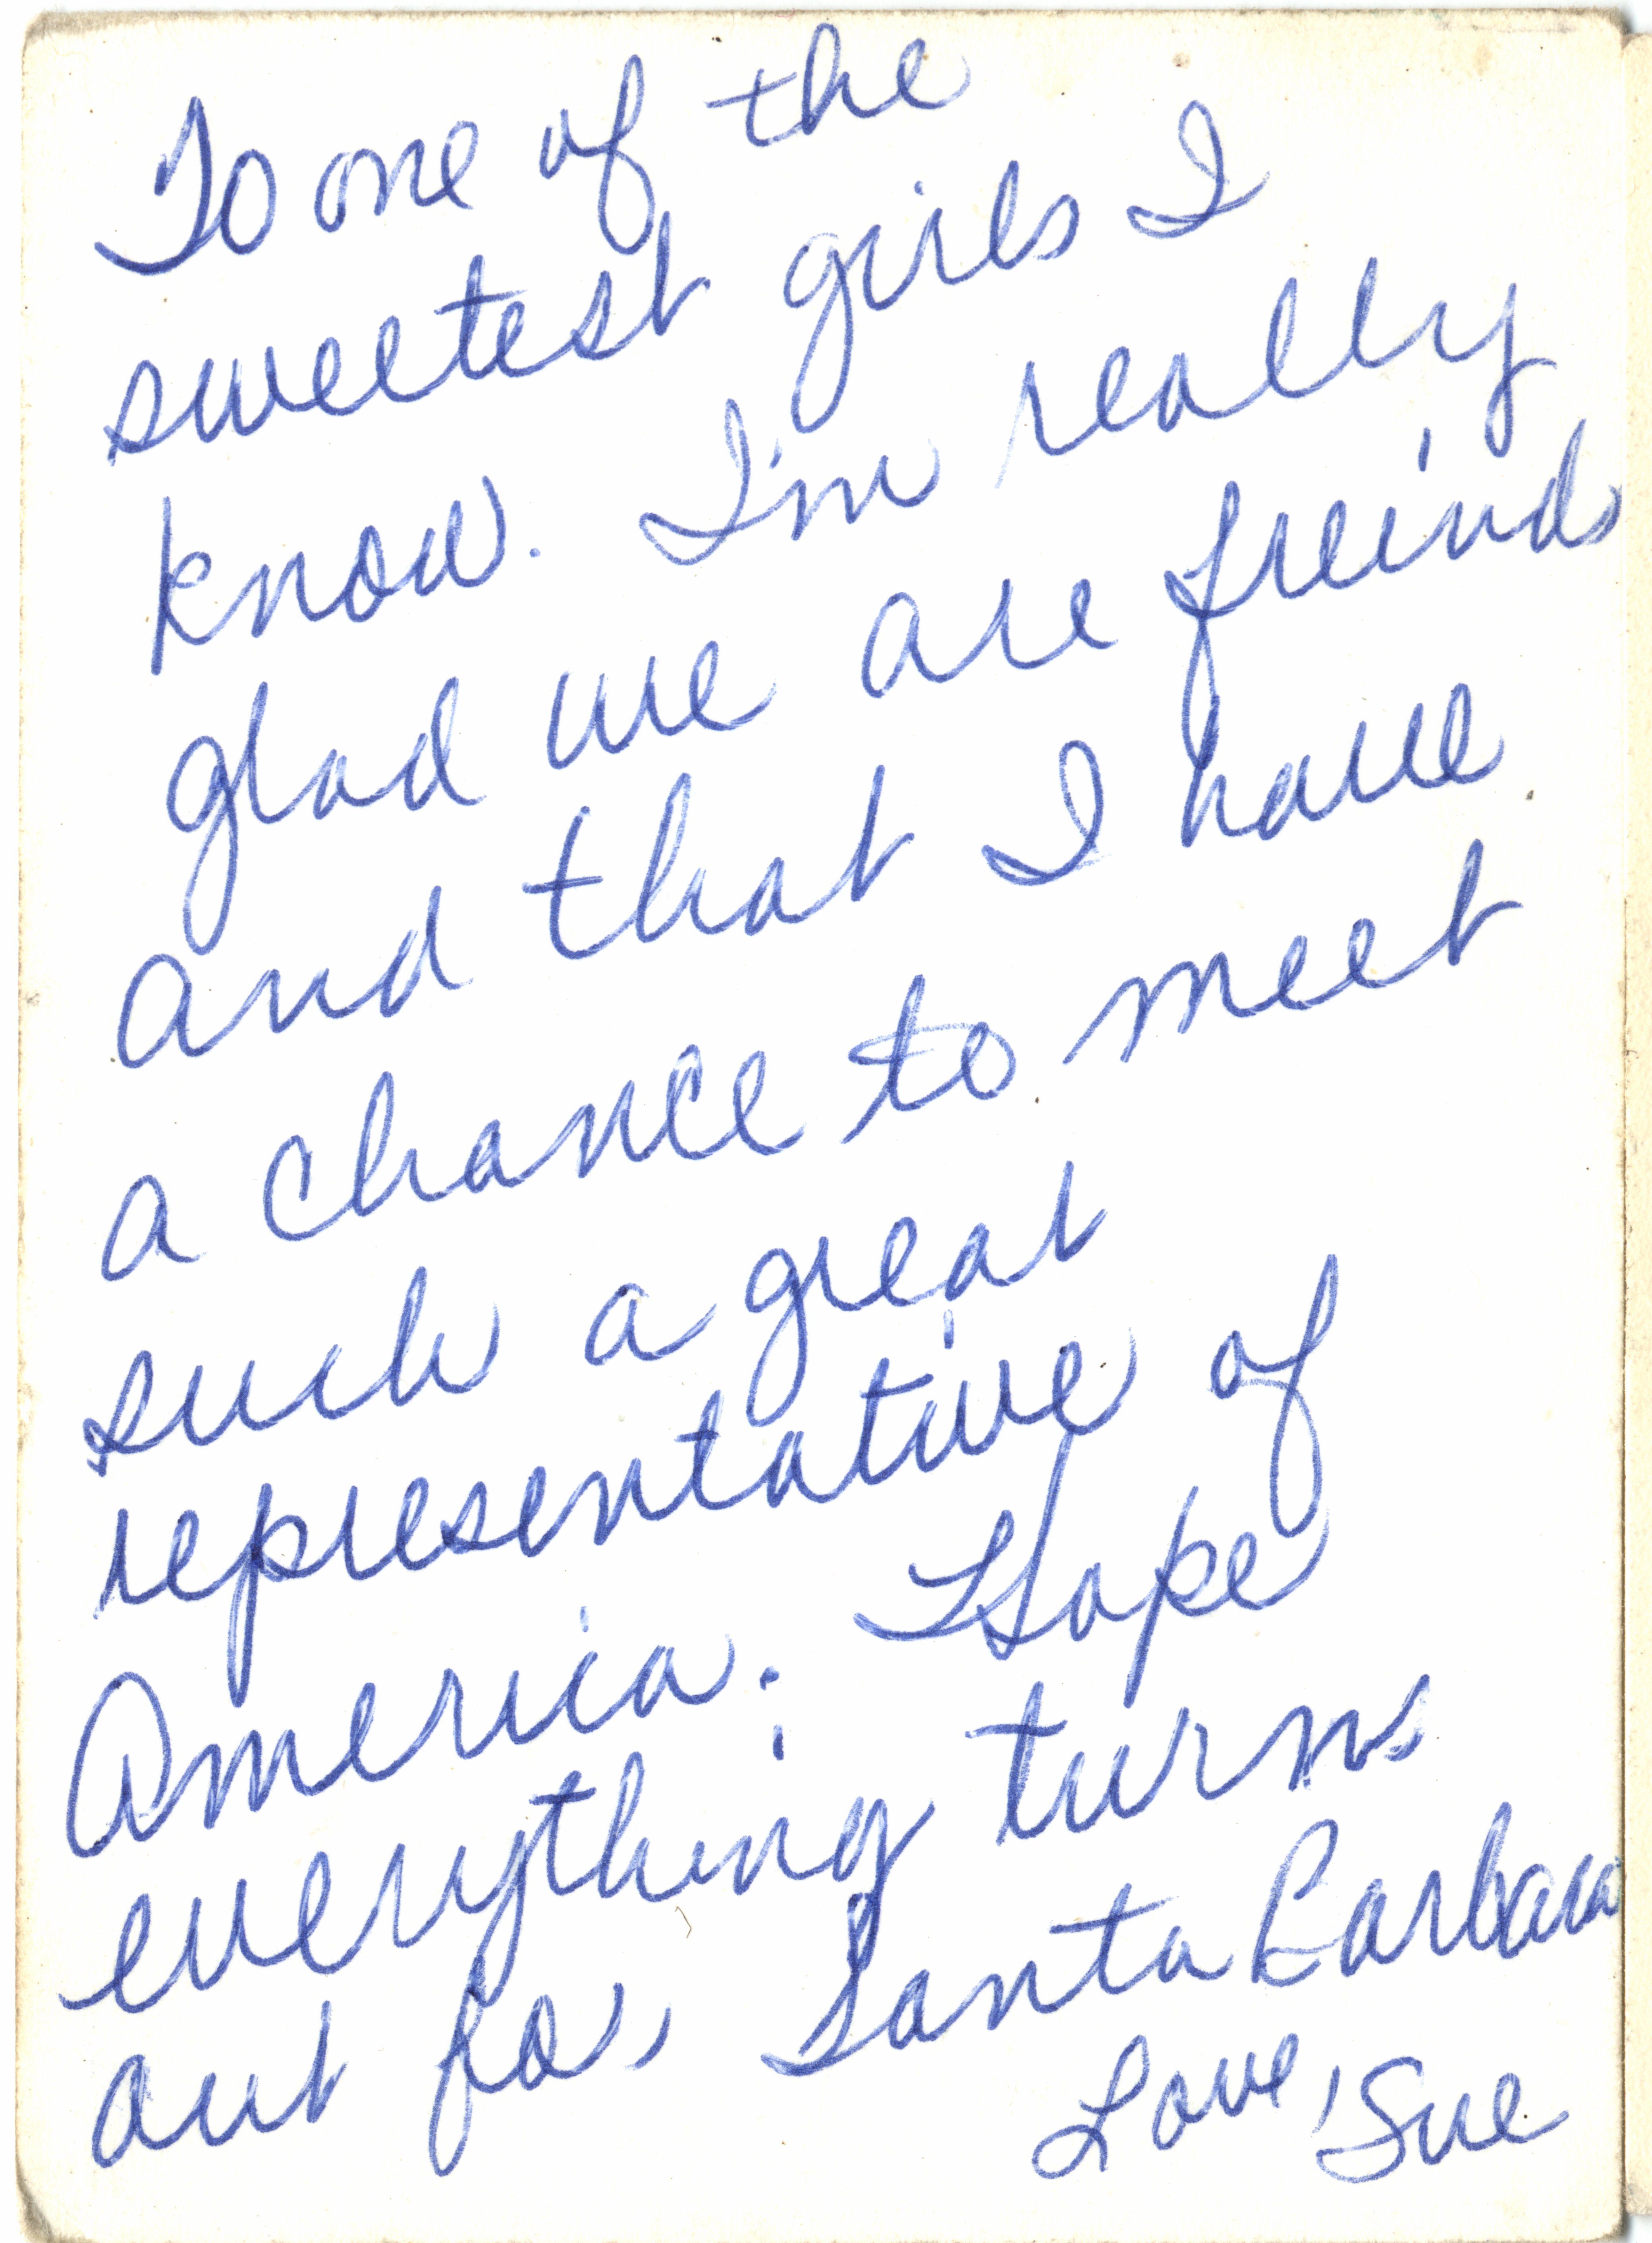 To one of the
sweetest girls I
know. I'm really
glad we are freinds
and that I have
a chance to meet
such a great
representative of
America. Hope
everything turns
out for Santa Barbara
Love, Sue